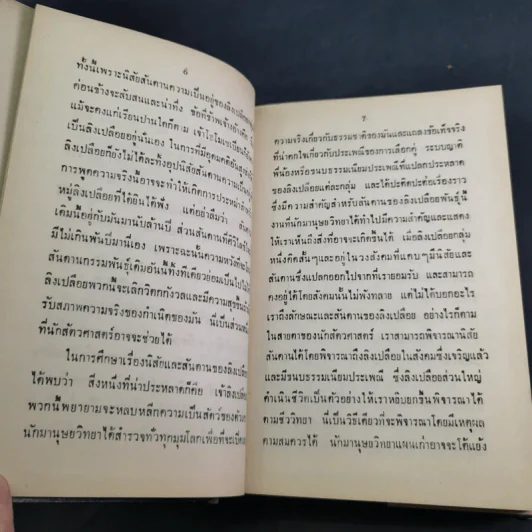 6
ทั้งนี้เพราะนิสัยสันดานความเป็นอยู่ของลิงเปลือย
ค่อนข้างจะลับสนและน่าทึ่ง ข้อที่ข้าพเจ้าอ้างถึง
แม้จะคงแก่เรียนปานใดก็ตาม เจ้าโฮโมเนเปียน
เป็นลิงเปลือยอยู่นั่นเอง ในการที่มีอุดมคติอัน
ลิงเปลือยก็ยังไม่ได้ละทิ้งอุปนิสัยสันดานความเป็น
การพูดความจริงนี้อาจจะทำให้เกิดการประหม่า
หมู่ลิงเปลือยที่ได้ยินได้ฟัง แต่อย่าลืมว่า
เดิมนี้อยู่กับมันมานับล้านปี ส่วนสันดานที่ศิวิไลซ์
มีไม่เกินพันปีมานี่เอง เพราะฉะนั้นความหวังที่จะ
สันดานกรรมพันธุ์เดิมอันนี้ทั้งทีเดียวย่อมเป็นไป
ลิงเปลือยพวกนี้จะเลิกวิตกกังวลและมีความสุขขึ้น
รับสภาพความจริงของกำเนิดของมัน นี่เป็นส่วน
ที่นักสัตวศาสตร์อาจจะช่วยได้
ในการศึกษาเรื่องนิสัยและสันดานของลิงเปลือย
ได้พบว่า สิ่งหนึ่งที่น่าประหลาดก็คือ เจ้าลิง
พวกนี้พยายามจะหลบหลีกความเป็นสัตว์ของตัว
นักมานุษยวิทยาได้สำรวจทั่วทุกมุมโลกเพื่อที่จะ
7
ความจริงเกี่ยวกับธรรมชาติของมันและแถลงข้อเท็จจริง
ที่น่าตกใจเกี่ยวกับประเพณีของการเลือกคู่ ระบบญาติ
พี่น้องหรือขนบธรรมเนียมประเพณีที่แปลกประหลาด
ของลิงเปลือยแต่ละกลุ่ม และได้ปะติดปะต่อเรื่องราว
ซึ่งมีความสำคัญสำหรับสันดานของลิงเปลือยพันธุ์นี้
งานที่นักมานุษยวิทยาได้ทำไปมีความสำคัญและแสดง
ให้เราเห็นถึงสิ่งที่อาจจะเกิดขึ้นได้ เมื่อลิงเปลือยกลุ่ม
หนึ่งคิดสั้นๆและอยู่ในวงสังคมที่แคบๆมีนิสัยและ
สันดานซึ่งแปลกออกไปจากที่เรายอมรับ และสามารถ
คงอยู่ได้โดยสังคมนั้นไม่พังทลาย แต่ไม่ได้บอกอะไร
เราถึงลักษณะและสันดานของลิงเปลือย อย่างไรก็ตาม
ในสายตาของนักสัตวศาสตร์ เราสามารถพิจารณานิสัย
สันดานได้โดยพิจารณาถึงลิงเปลือยในสังคมซึ่งเจริญแล้ว
และมีขนบธรรมเนียมประเพณี ซึ่งลิงเปลือยส่วนใหญ่
ดำเนินชีวิตเป็นตัวอย่างให้เราหยิบยกขึ้นพิจารณาได้
ตามชีววิทยา นี่เป็นวิธีเดียวที่จะพิจารณาโดยมีเหตุผล
ตามสมควรได้ นักมานุษยวิทยาแผนเก่าอาจจะโต้แย้ง